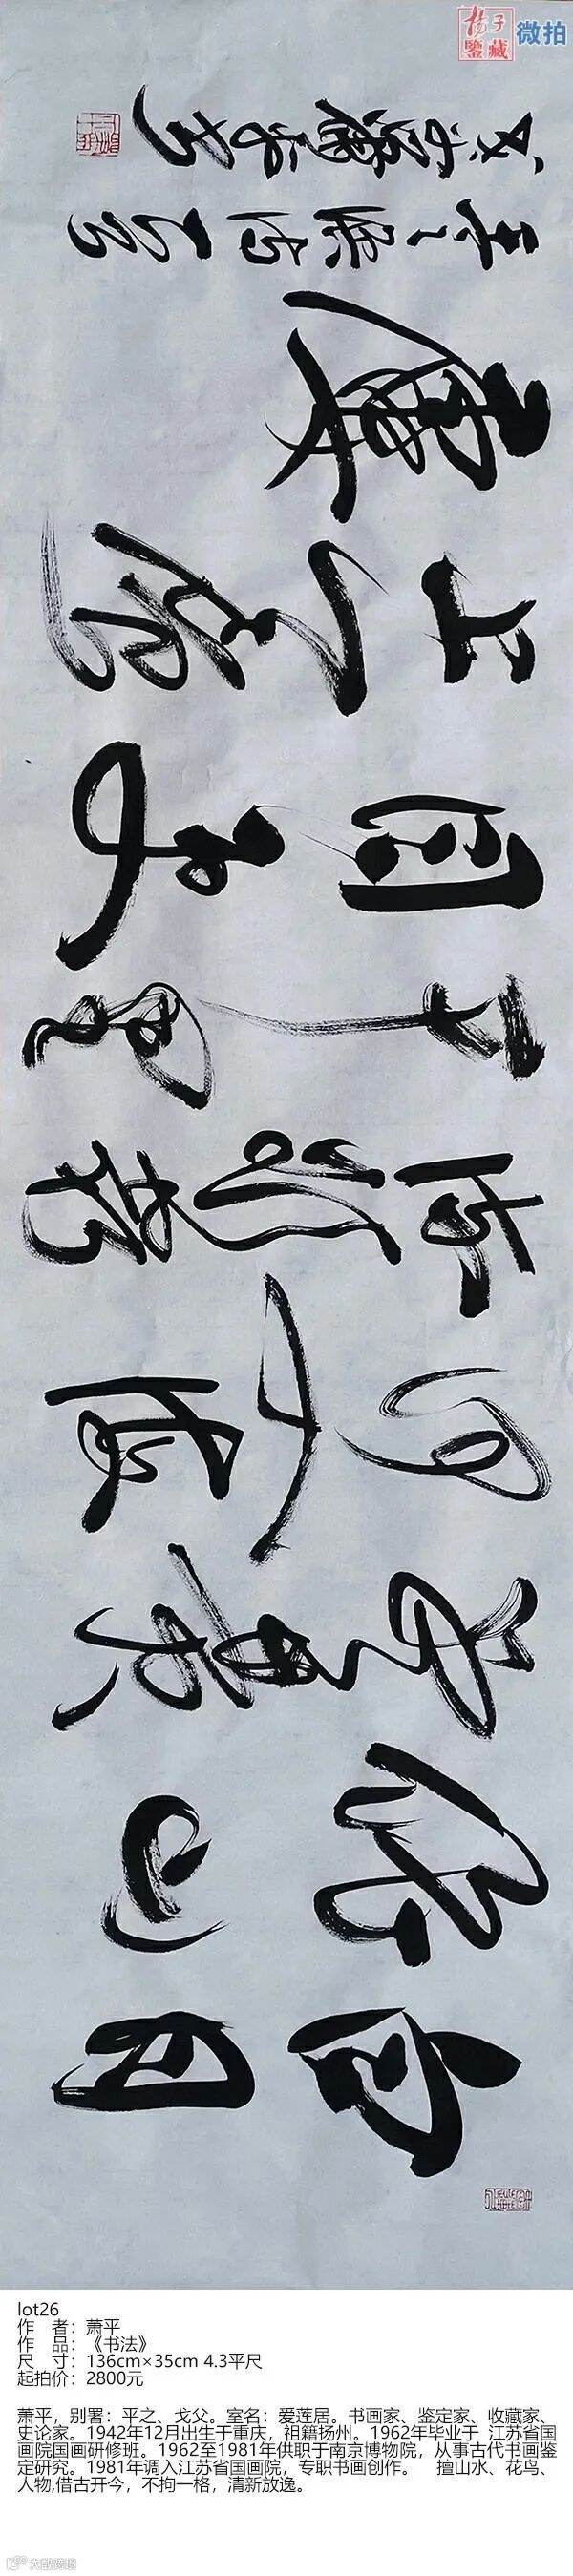 扬子鉴藏 微拍
白日
依山
尽黄河
入海
流欲穷
千里
目更
上一层
楼
王之涣诗一首
戈父萧平书
lot26
作 者：萧平
作 品：《书法》
尺 寸：136cm×35cm 4.3平尺
起拍价：2800元
萧平，别署：平之、戈父。室名：爱莲居。书画家、鉴定家、收藏家、
史论家。1942年12月出生于重庆，祖籍扬州。1962年毕业于 江苏省国
画院国画研修班。1962至1981年供职于南京博物院，从事古代书画鉴
定研究。1981年调入江苏省国画院，专职书画创作。 擅山水、花鸟、
人物,借古开今，不拘一格，清新放逸。